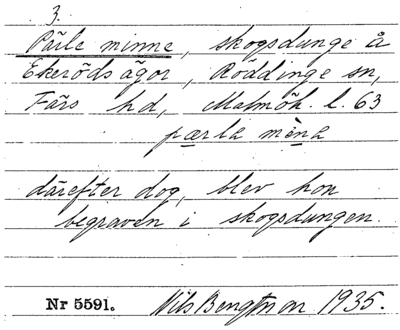 3.
Pärle minne, skogsdunge å
Ekeröds ägor, Röddinge sn,
Färs hd, Malmöh. l. 63
pærla mina
därefter dog, blev hon
begraven i skogsdungen.
Nr 5591. Nils Bengtsson 1935.